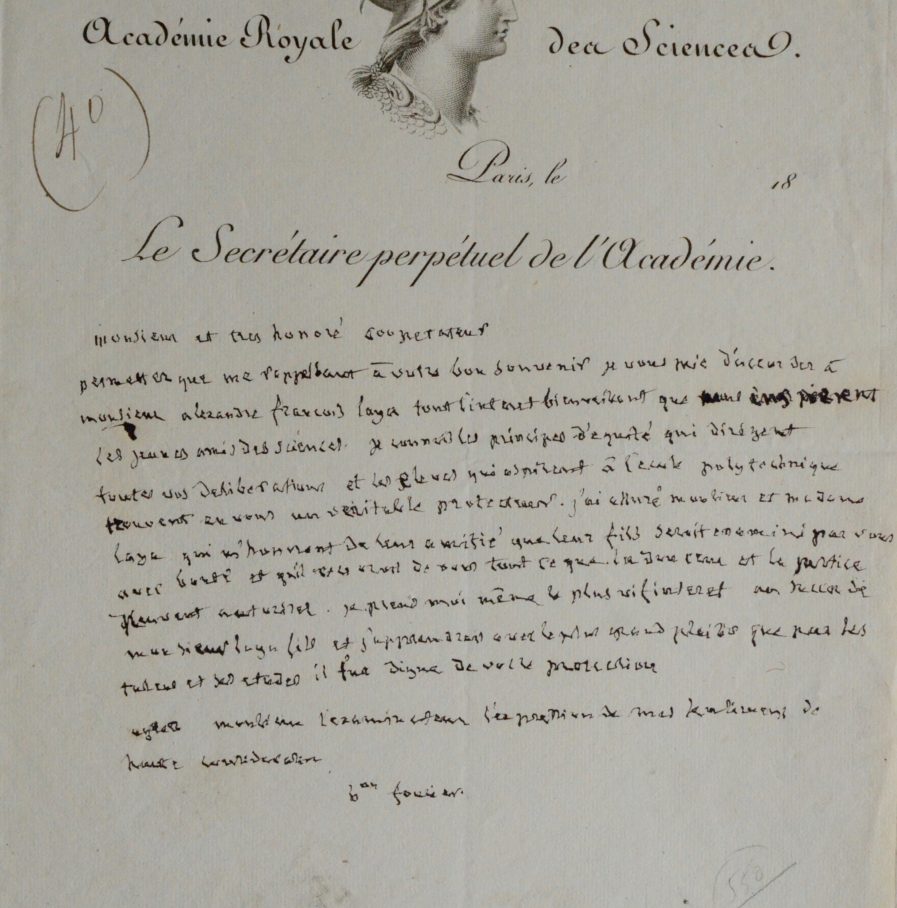 Académie Royale des Sciences.
(40)
Paris, le 18
Le Secrétaire perpétuel de l'Académie.
monsieur et tres honoré cooperateur
permettez que me rappellant à votre bon souvenir je vous prie d'accorder à
monsieur alexandre françois laya tout l'interet bienveillant que vous inspirent
les jeunes amis des sciences. je connais les principes d'equité qui dirigent
toutes vos deliberations et les eleves qui aspirent à l'ecole polytechnique
trouvent en vous un veritable protecteur. j'ai assuré monsieur et madame
laya qui m'honorent de leur amitié que leur fils serait examiné par vous
avec bonté et qu'il de vous tout ce que l'indulgence et la justice
peuvent autoriser. je prens moi même le plus vif interet au succes de
monsieur laya fils et j'apprendrais avec le plus grand plaisir que par ses
talens et ses etudes il fut digne de votre protection
agréez monsieur l'examinateur l'expression de mes sentimens de
haute consideration
b<sup>on</sup> fourier.
550